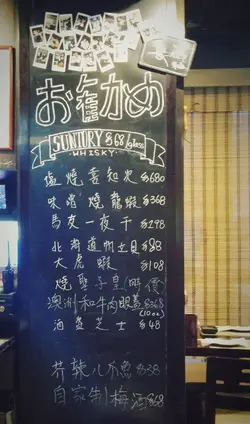 お勧め
SUNTORY $68/glass
WHISKY
塩燒喜知次 $680
味噌燒龍蝦 $368
馬友一夜干 $298
北海道帆立貝 $88
大虎蝦 $108
燒聖子皇(時價)
澳洲和牛肉眼蓋 $368
(10oz)
酒盗芝士 $48
芥辣八爪魚 $38
自家制梅酒 $68